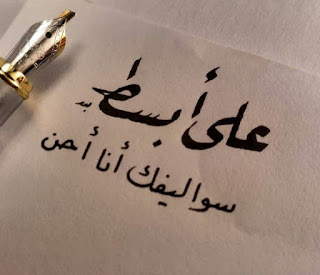 على أبسط
سواليفك أنا أحن